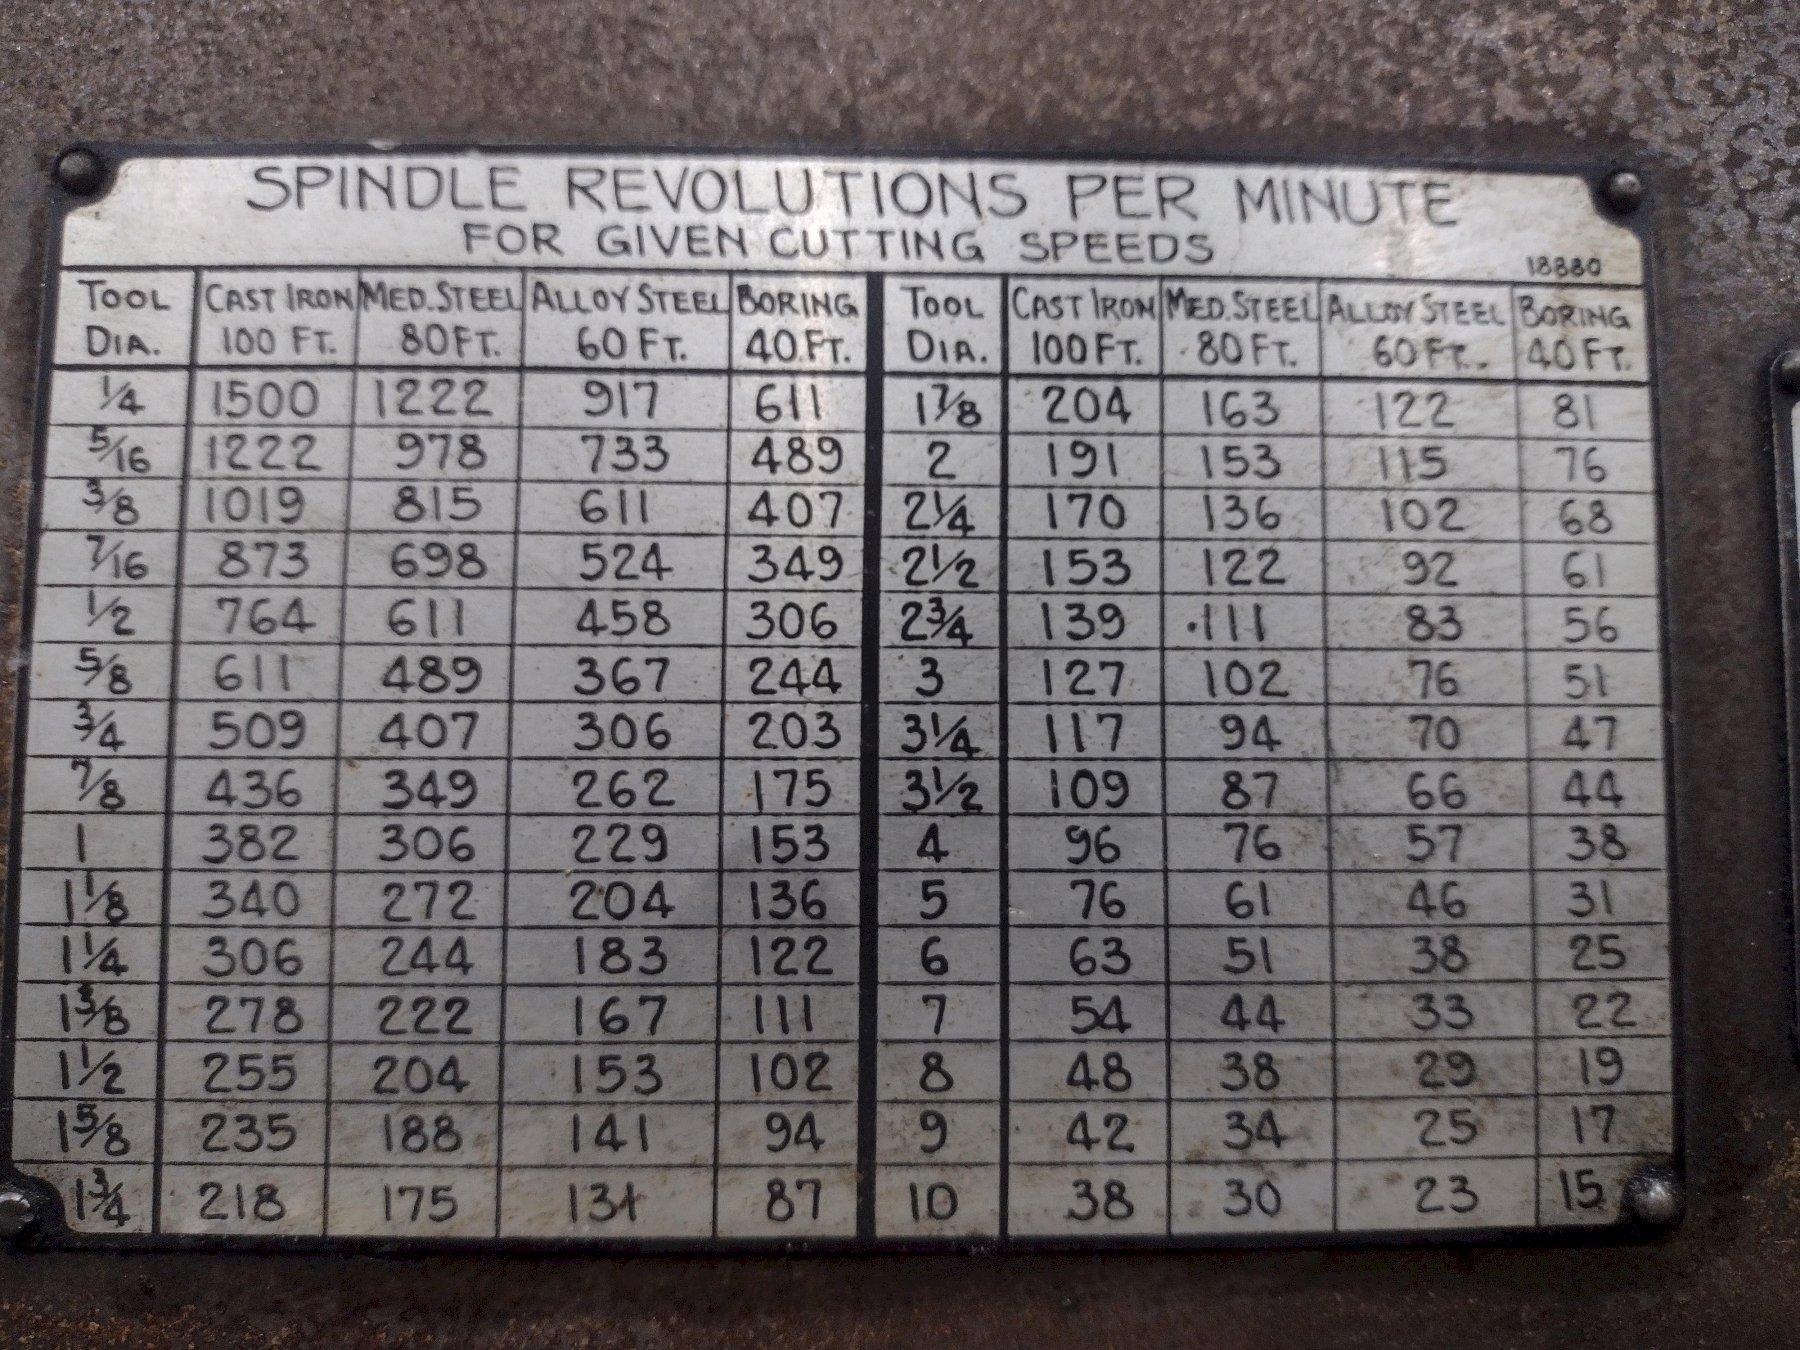 SPINDLE REVOLUTIONS PER MINUTE
FOR GIVEN CUTTING SPEEDS
18880
TOOL DIA. CAST IRON 100 FT. MED. STEEL 80 FT. ALLOY STEEL 60 FT. BORING 40 FT. TOOL DIA. CAST IRON 100 FT. MED. STEEL 80 FT. ALLOY STEEL 60 FT. BORING 40 FT.
1/4 1500 1222 917 611 1 7/8 204 163 122 81
5/16 1222 978 733 489 2 191 153 115 76
3/8 1019 815 611 407 2 1/4 170 136 102 68
7/16 873 698 524 349 2 1/2 153 122 92 61
1/2 764 611 458 306 2 3/4 139 111 83 56
5/8 611 489 367 244 3 127 102 76 51
3/4 509 407 306 203 3 1/4 117 94 70 47
7/8 436 349 262 175 3 1/2 109 87 66 44
1 382 306 229 153 4 96 76 57 38
1 1/8 340 272 204 136 5 76 61 46 31
1 1/4 306 244 183 122 6 63 51 38 25
1 3/8 278 222 167 111 7 54 44 33 22
1 1/2 255 204 153 102 8 48 38 29 19
1 5/8 235 188 141 94 9 42 34 25 17
1 3/4 218 175 131 87 10 38 30 23 15